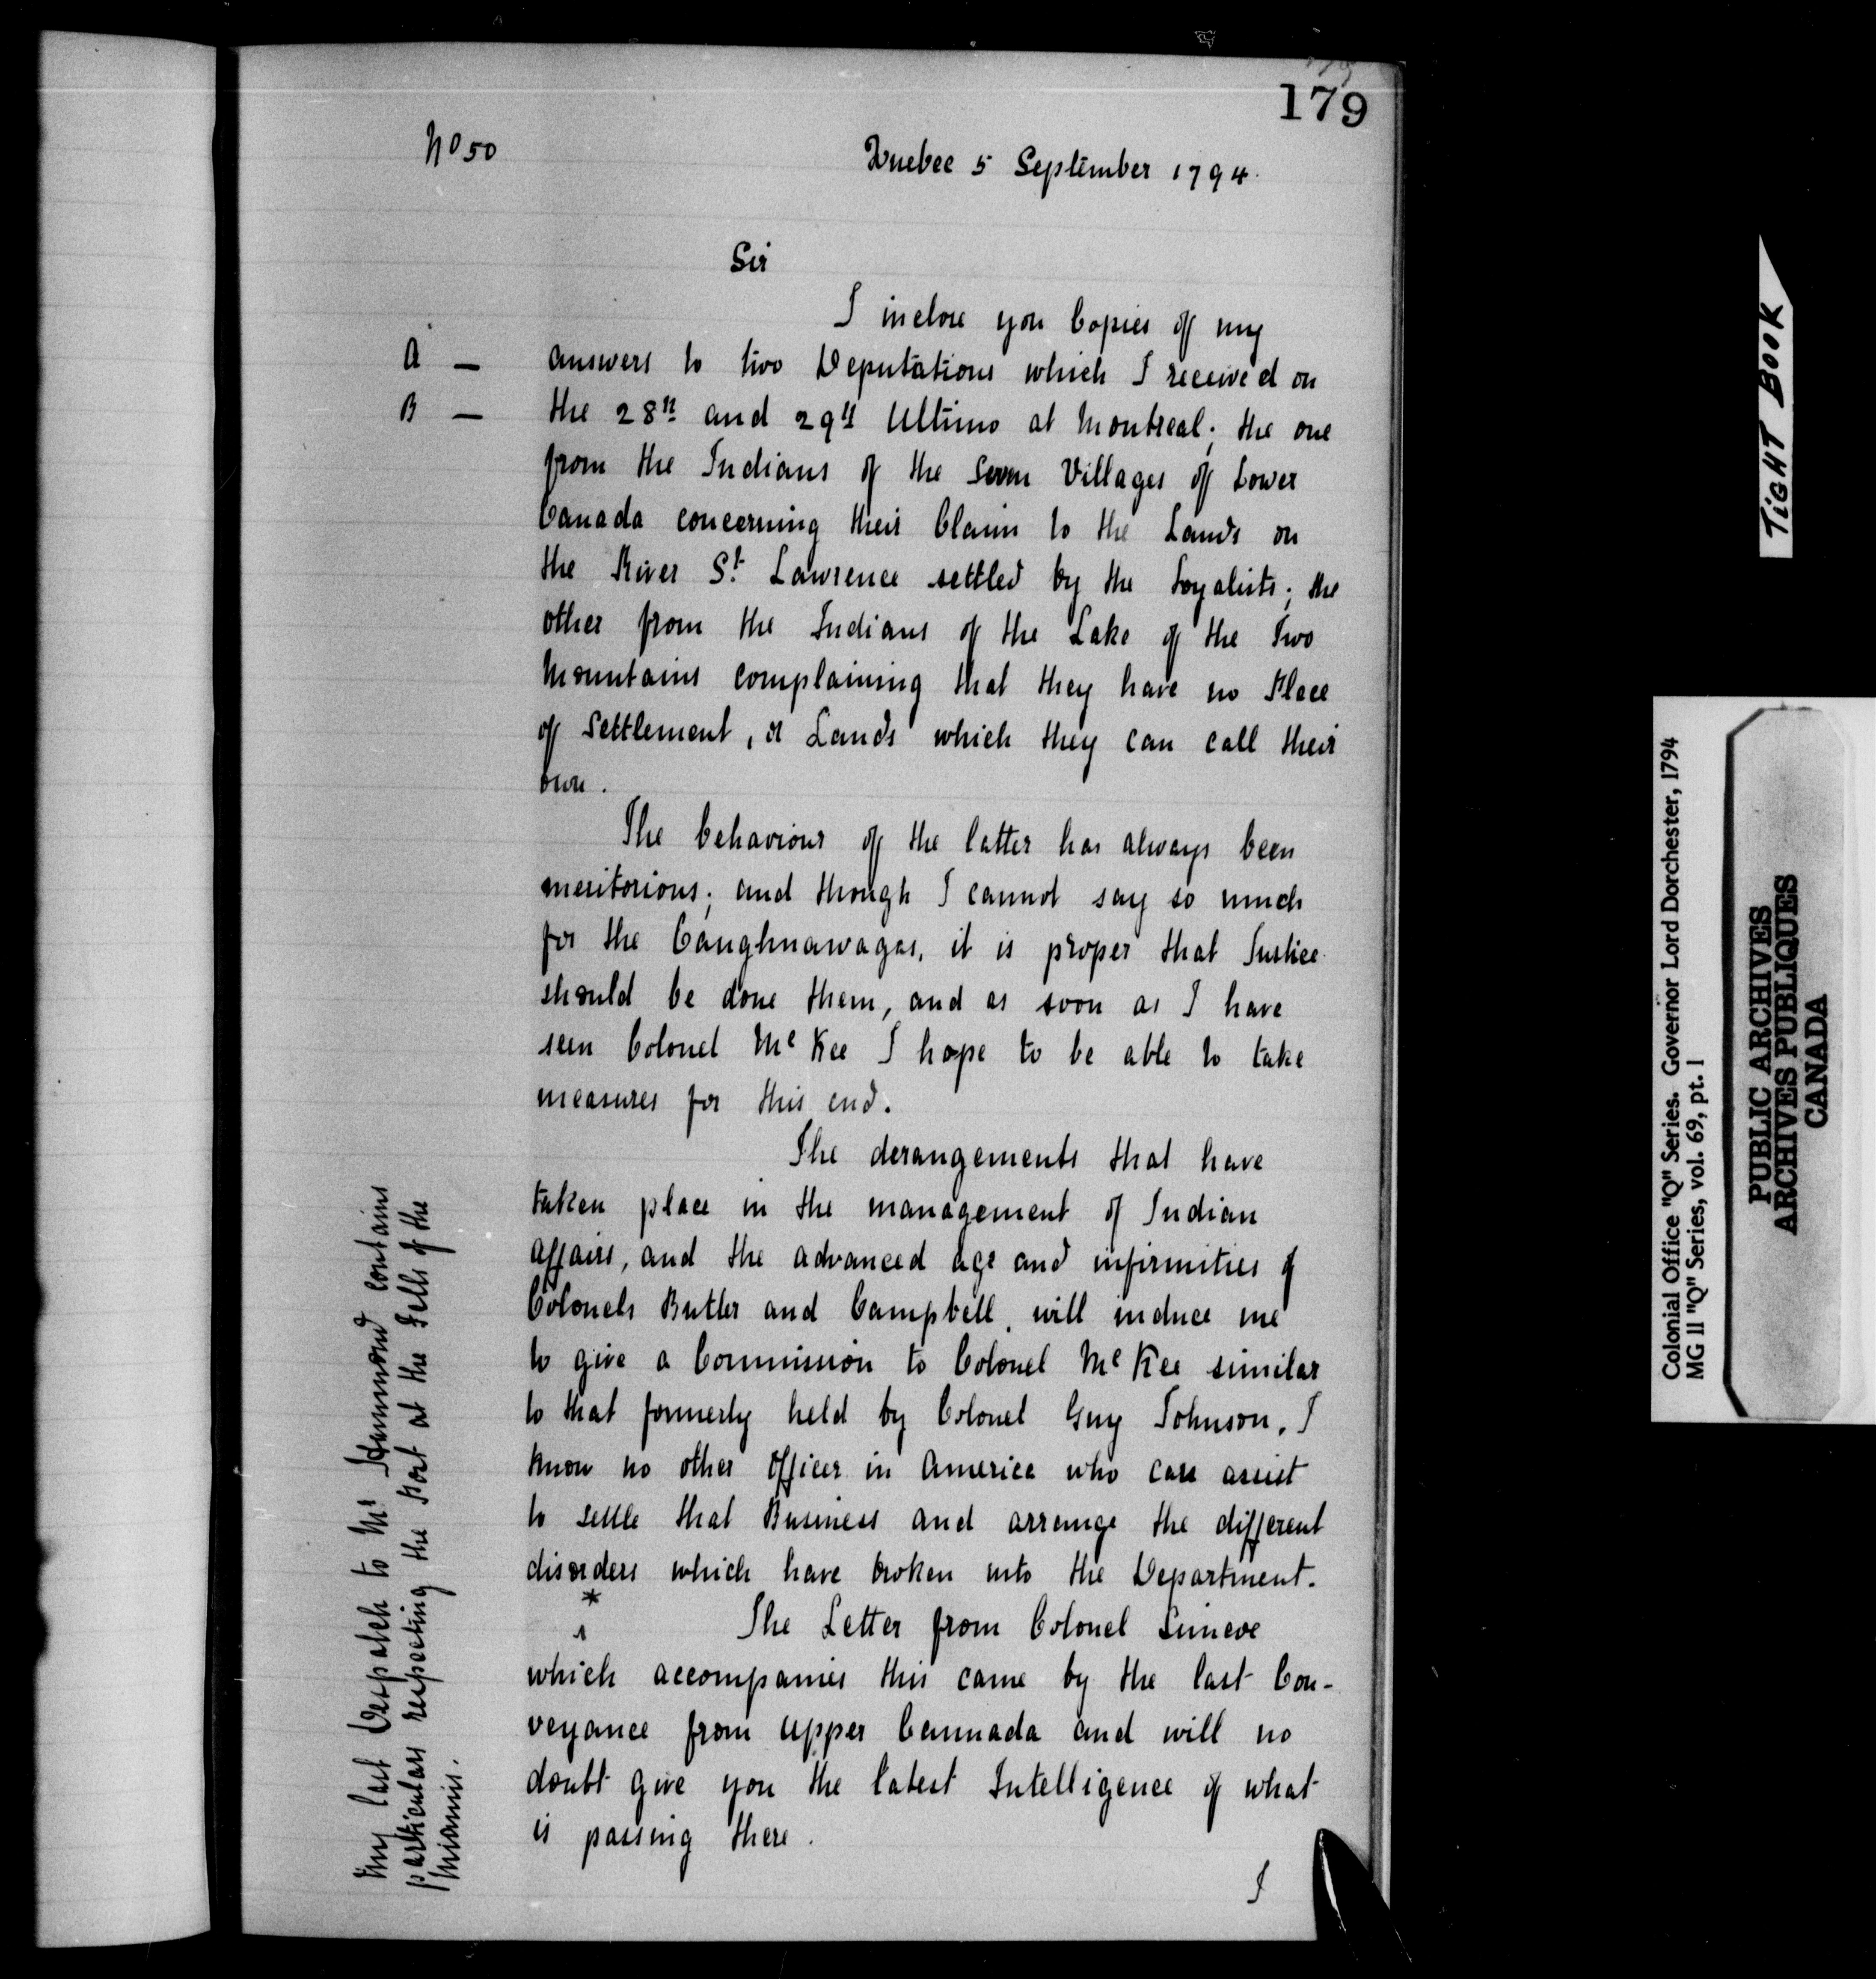 179
No 50
Quebec 5 September 1794.
Sir
I inclose you Copies of my
A — answers to two Deputations which I received on
B — the 28th and 29th Ultimo at Montreal; the one
from the Indians of the Seven Villages of Lower
Canada concerning their Claim to the Lands on
the River St. Lawrence settled by the Loyalists; the
other from the Indians of the Lake of the Two
Mountains complaining that they have no Place
of Settlement, or Lands which they can call their
own.
The behaviour of the latter has always been
meritorious; and though I cannot say so much
for the Caughnawagas, it is proper that Justice
should be done them, and as soon as I have
seen Colonel McKee I hope to be able to take
measures for this end.
The derangements that have
taken place in the management of Indian
affairs, and the advanced age and infirmities of
Colonels Butler and Campbell, will induce me
to give a Commission to Colonel McKee similar
to that formerly held by Colonel Guy Johnson, I
know no other Officer in America who can assist
to settle that Business and arrange the different
disorders which have broken into the Department.
*
The Letter from Colonel Simcoe
which accompanies this came by the last Con-
veyance from Upper Cannada and will no
doubt give you the latest Intelligence of what
is passing there.
I
My last Despatch to Mr Hammond contains
particulars respecting the Post at the Falls of the
Miamis.
TIGHT BOOK
Colonial Office "Q" Series. Governor Lord Dorchester, 1794
MG 11 "Q" Series, vol. 69, pt. 1
PUBLIC ARCHIVES
ARCHIVES PUBLIQUES
CANADA